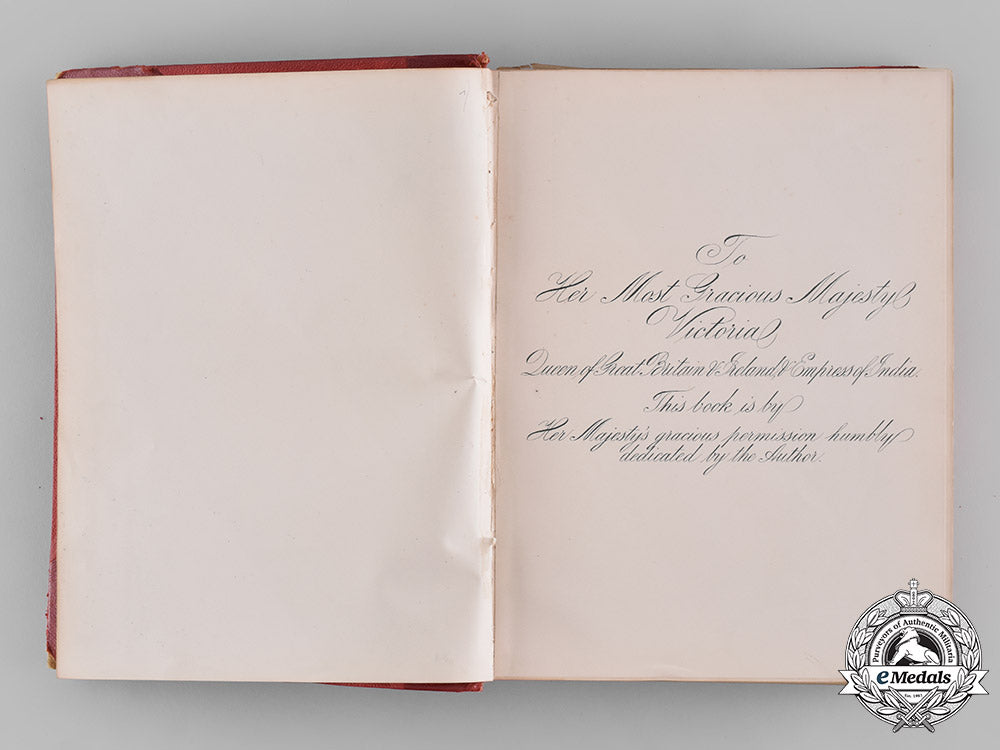 To
Her Most Gracious Majesty
Victoria
Queen of Great Britain & Ireland, & Empress of India.
This book is by
Her Majesty's gracious permission humbly
dedicated by the Author.
Purveyors of Authentic Militaria
eMedals
Est. 1967